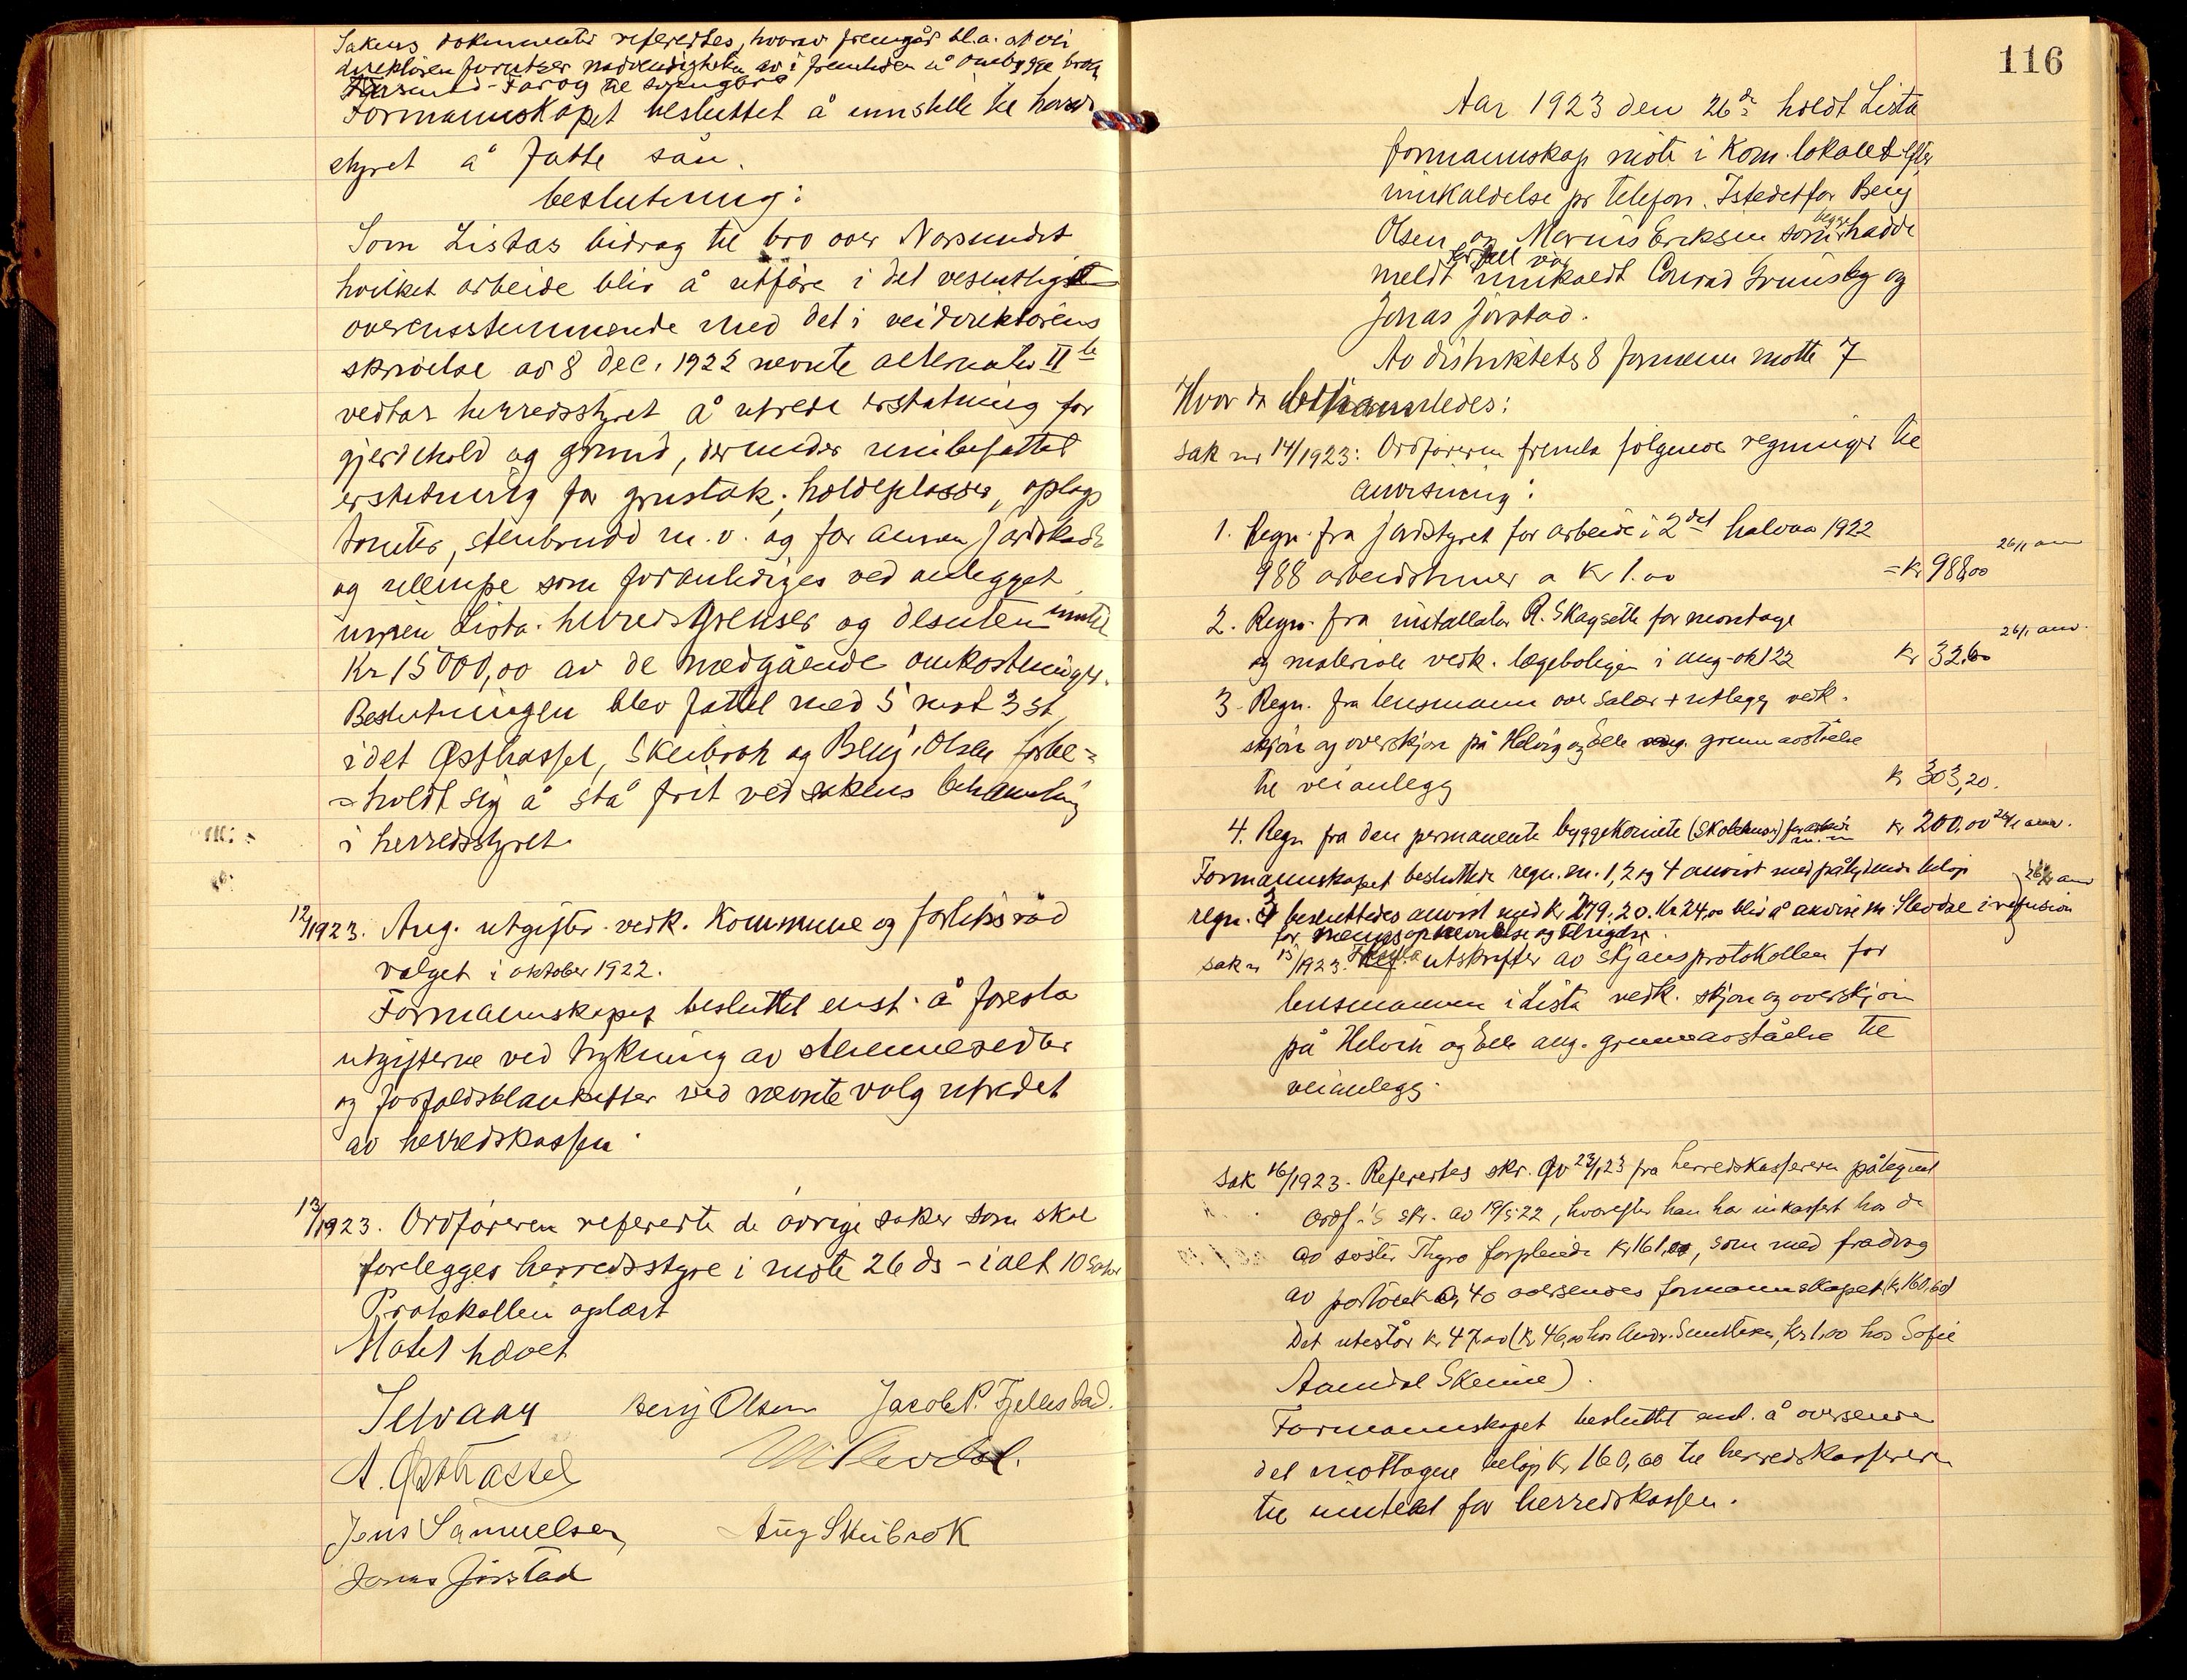 Sakens dokumenter refereertes, hvorav fremgår bl.a. at vei
direktören forutser nödvendigheten av i fremtiden å ombygge broen
Farsund-Farøy til svingbro
Formannskapet besluttet å innstille til herreds
styret å fatte sån.
beslutning:
Som Listas bidrag til bro over Narsundet
hvilket arbeide blir å utföre i det vesentligst
overensstemmende med det i veidirektörens
skrivelse av 8 dec. 1922 nevnte alternativ II te
vedtar herredsstyret å utrede erstatning for
gjerdehold og grund, derunder innbefattet
erstatning for grustak, holdeplasser, oplags
tomter, stenbrudd m.v. og for annen jordskade
og ulempe som foranlediges ved anlegget
innen Lista herredsgrenser og desuten inntil
Kr 15000,00 av de medgående omkostninger.
Beslutningen blev fattet med 5 mot 3 st.
idet Østhassel, Skeibrok og Benj. Olsen forbe=
=holdt sig å stå frit ved sakens behandling
i herredsstyret.
12/1923. Ang. utgifter vedk. Kommune og forliksråd
valget i oktober 1922.
Formannskapet besluttet enst. å foresla
utgifterne ved trykning av stemmesedler
og forfaldsblanketter ved nevnte valg utredet
av herredskassen.
13/1923. Ordföreren refererte de övrige saker som skal
forelegges herredsstyre i möte 26 ds - ialt 10 saker
Protokollen oplæst
Mötet hævet
Benj Olsen Jacob P. Fjellestad.
A. Østhassel
Jens Samuelsen Aug Skeibrok
Jonas Jörstad
116
Aar 1923 den 26de holdt Lista
formannskap möte i Kom. lokalet efter
innkaldelse pr telefon. Istedetfor Benj
Olsen og Marius Eriksen som begge hadde
meldt forfall var innkaldt Conrad Grimsby og
Jonas Jörstad.
Av distriktets 8 formenn mötte 7
Hvor da behandledes:
Sak nr 14/1923: Ordföreren fremla fölgende regninger til
anvisning:
1. Regn. fra jordstyret for arbeide i 2det halvaar 1922
988 arbeidstimer a Kr 1.00 = Kr 988,00 26/1 anv
2. Regn. fra installatör R. Skagseth for montage
og materiale vedk. lægeboligen i aug-okt 22 Kr 32.60 26/1 anv.
3. Regn. fra lensmann over salær + utlegg vedk.
skjön og overskjön på Helvig og Elle ang. grunnavståelse
til veianlegg Kr 303,20.
4. Regn fra den permanente byggekomite (Skolehuse) for arbeide m.m Kr 200,00 26/1 anv.
Formannskapet besluttede regn. nr. 1, 2 og 4 anvist med pålydende belöp 26/1 anv
regn. 3 besluttedes anvist med kr 279,20. Kr 24,00 blir å anvise M. Slevdal i refusion
for mannsopnevnelse og tilsigelse.
Sak nr 15/1923. Fremla utskrifter av skjönsprotokollen for
lensmannen i Lista vedk. skjön og overskjön
på Helvik og Elle ang. grunnavståelse til
veianlegg.
Sak 16/1923. Referertes skr. av 23/1 23 fra herredskassereren påtegnet
ordf.'s skr. av 19/5 22, hvorefter han har inkassert hos de
av söster Thyra forpleiede Kr 161,00, som med fradrag
av porto Kr 0,40 oversendes formannskapet (Kr 160,60)
Det utestår Kr 47,00 (Kr 46,00 hos Andr. , Kr 1,00 hos Sofie
Aamdal Skeime).
Formannskapet besluttet enst. å oversende
det mottagne belöp Kr 160,60 til herredskassereren
til inntekt for herredskassen.